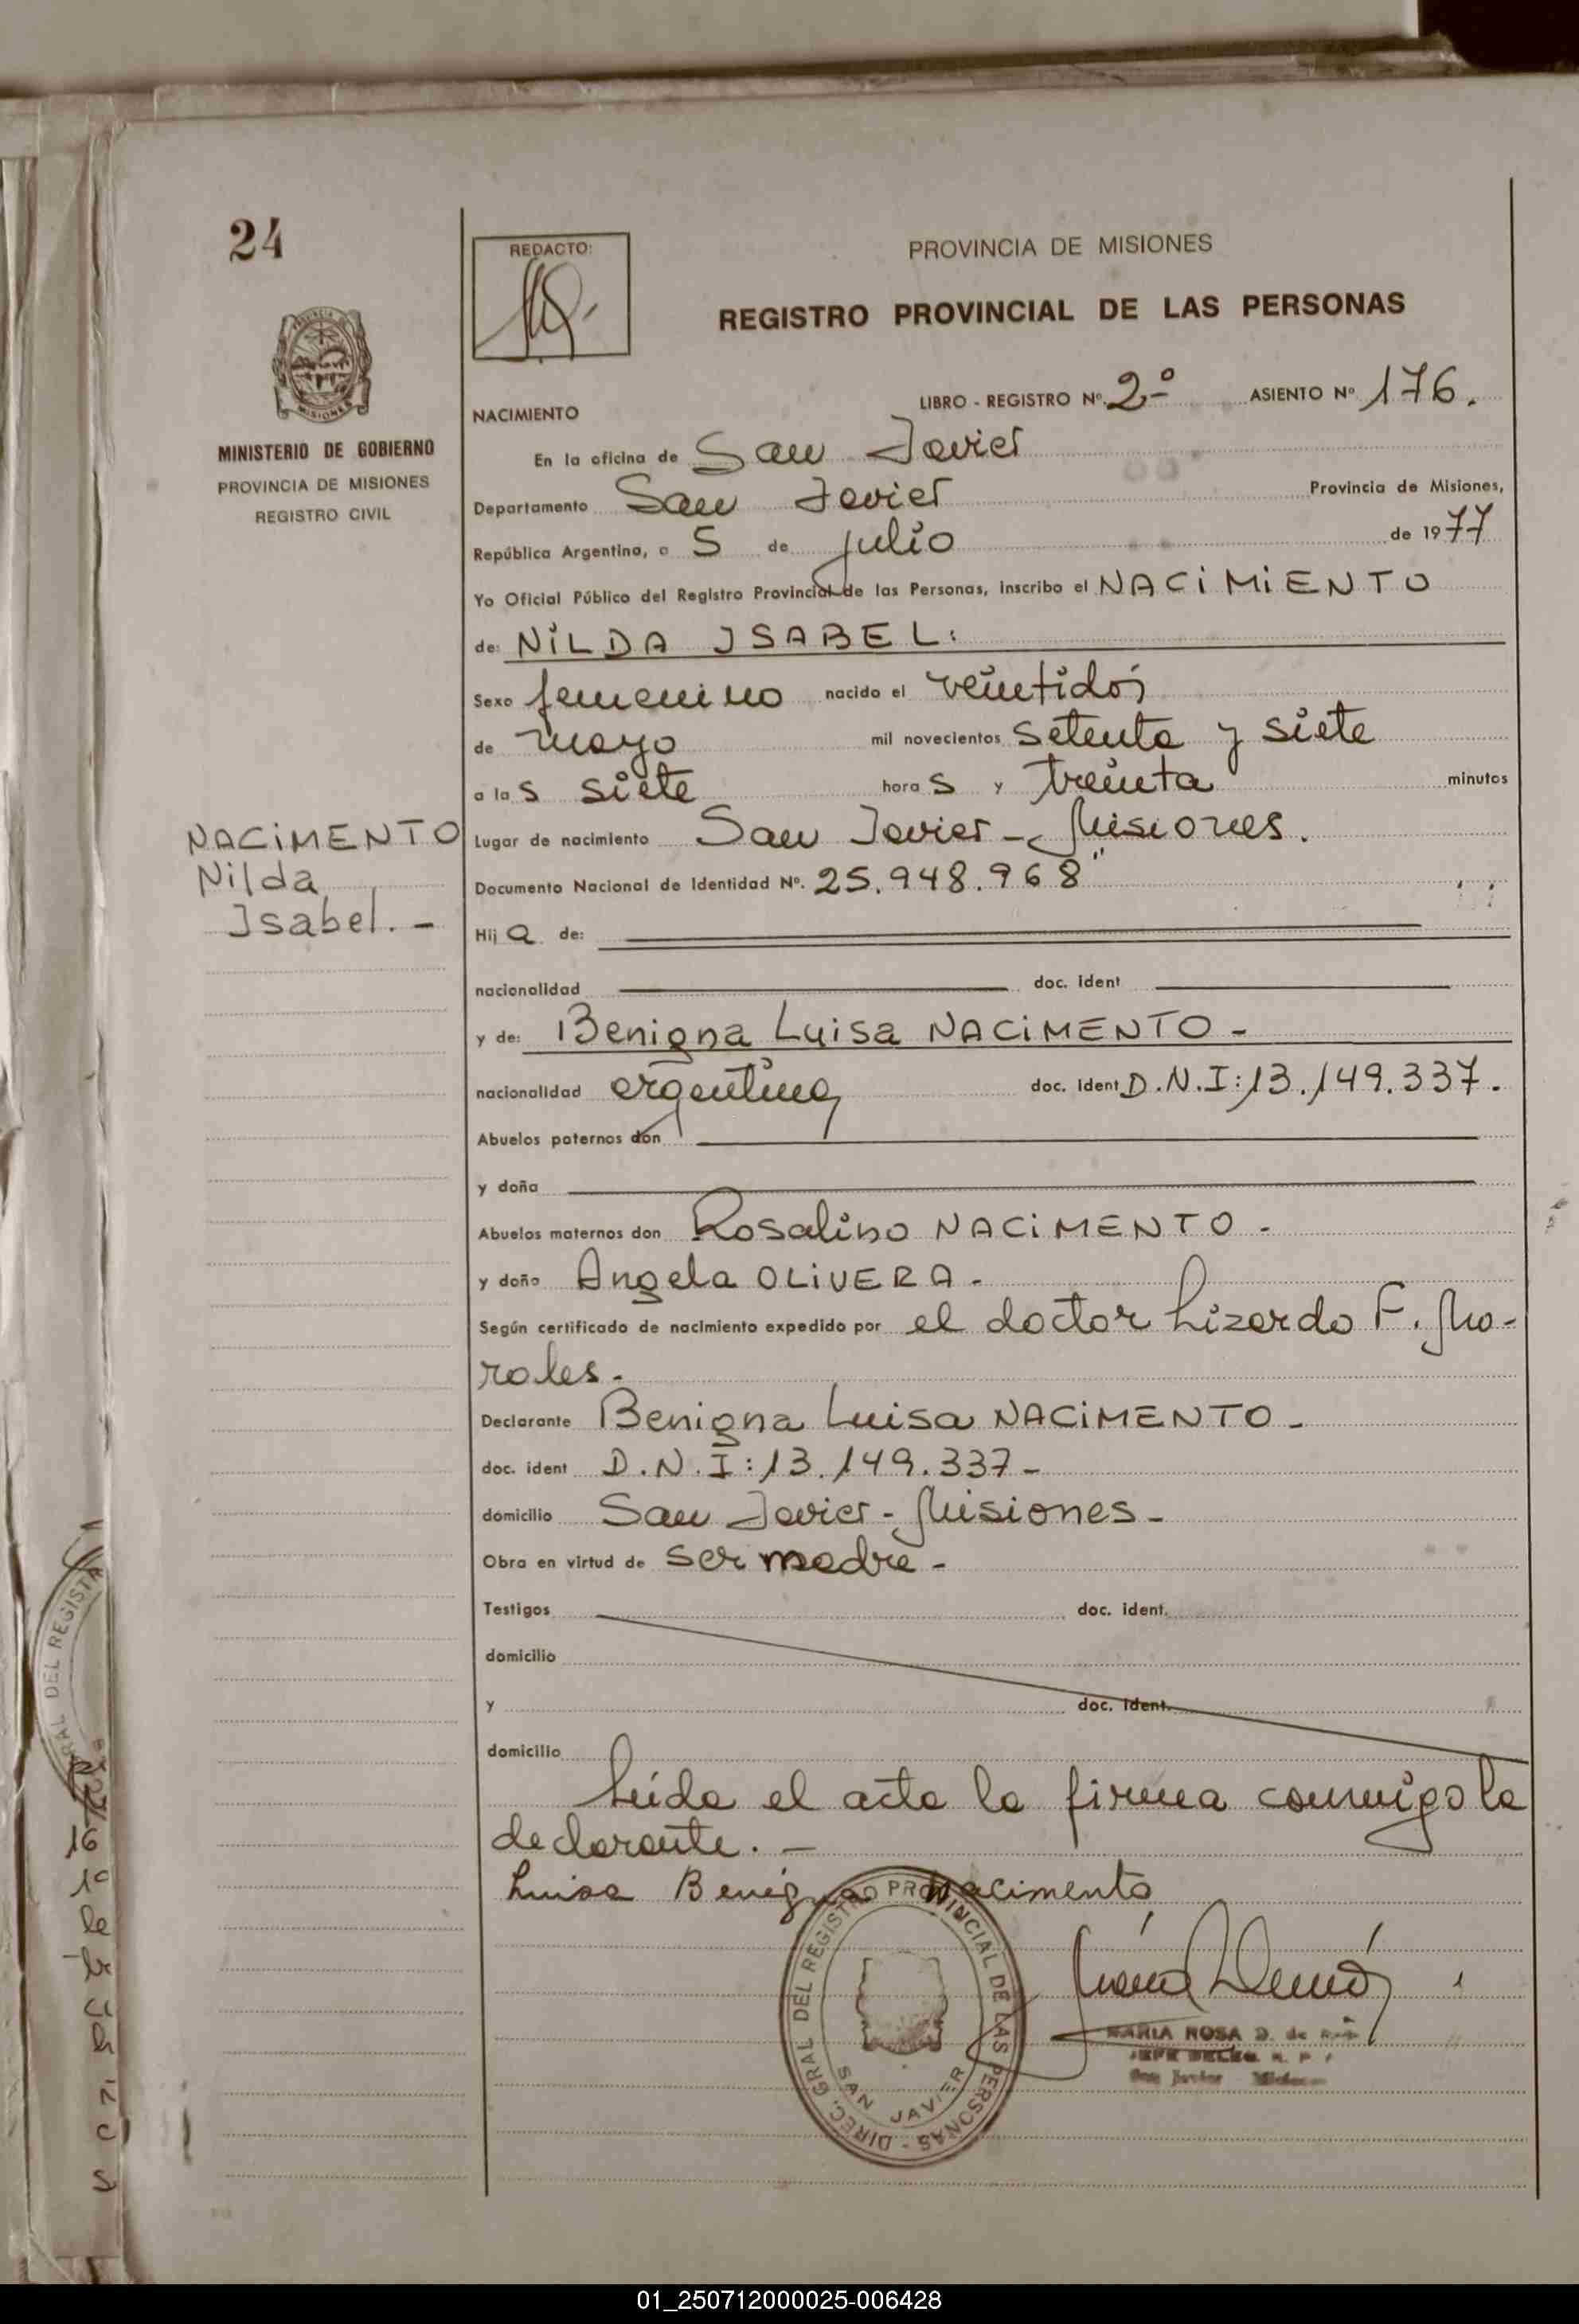 24
REDACTO:
PROVINCIA DE MISIONES
REGISTRO PROVINCIAL DE LAS PERSONAS
MINISTERIO DE GOBIERNO
PROVINCIA DE MISIONES
REGISTRO CIVIL
NACIMIENTO
LIBRO - REGISTRO Nº. 2º ASIENTO Nº 176.
En la oficina de San Javier
Departamento San Javier Provincia de Misiones,
República Argentina, a 5 de julio de 1977
Yo Oficial Público del Registro Provincial de las Personas, inscribo el NACIMIENTO
de: NILDA ISABEL:
Sexo femenino nacido el veintidós
de mayo mil novecientos setenta y siete
a las siete horas y treinta minutos
NACIMENTO
Nilda
Isabel. -
Lugar de nacimiento San Javier - Misiones.
Documento Nacional de Identidad Nº. 25.948.968"
Hija de:
nacionalidad doc. ident
y de: Benigna Luisa NACIMENTO -
nacionalidad argentina doc. ident D.N.I: 13.149.337.
Abuelos paternos don
y doña
Abuelos maternos don Rosalino NACIMENTO -
y doña Angela OLIVERA -
Según certificado de nacimiento expedido por el doctor Lizardo F. Mo-
rales -
Declarante Benigna Luisa NACIMENTO -
doc. ident D.N.I: 13.149.337 -
domicilio San Javier - Misiones -
Obra en virtud de ser madre -
Testigos doc. ident.
domicilio
y doc. ident.
domicilio
Leída el acta la firma conmigo la
declarante. -
Luisa Benigna Nacimento
DIREC. GRAL DEL REGISTRO PROVINCIAL DE LAS PERSONAS -
SAN JAVIER
MARIA ROSA D. de
San Javier Misiones
RAL DEL REGISTR
16
01_250712000025-006428